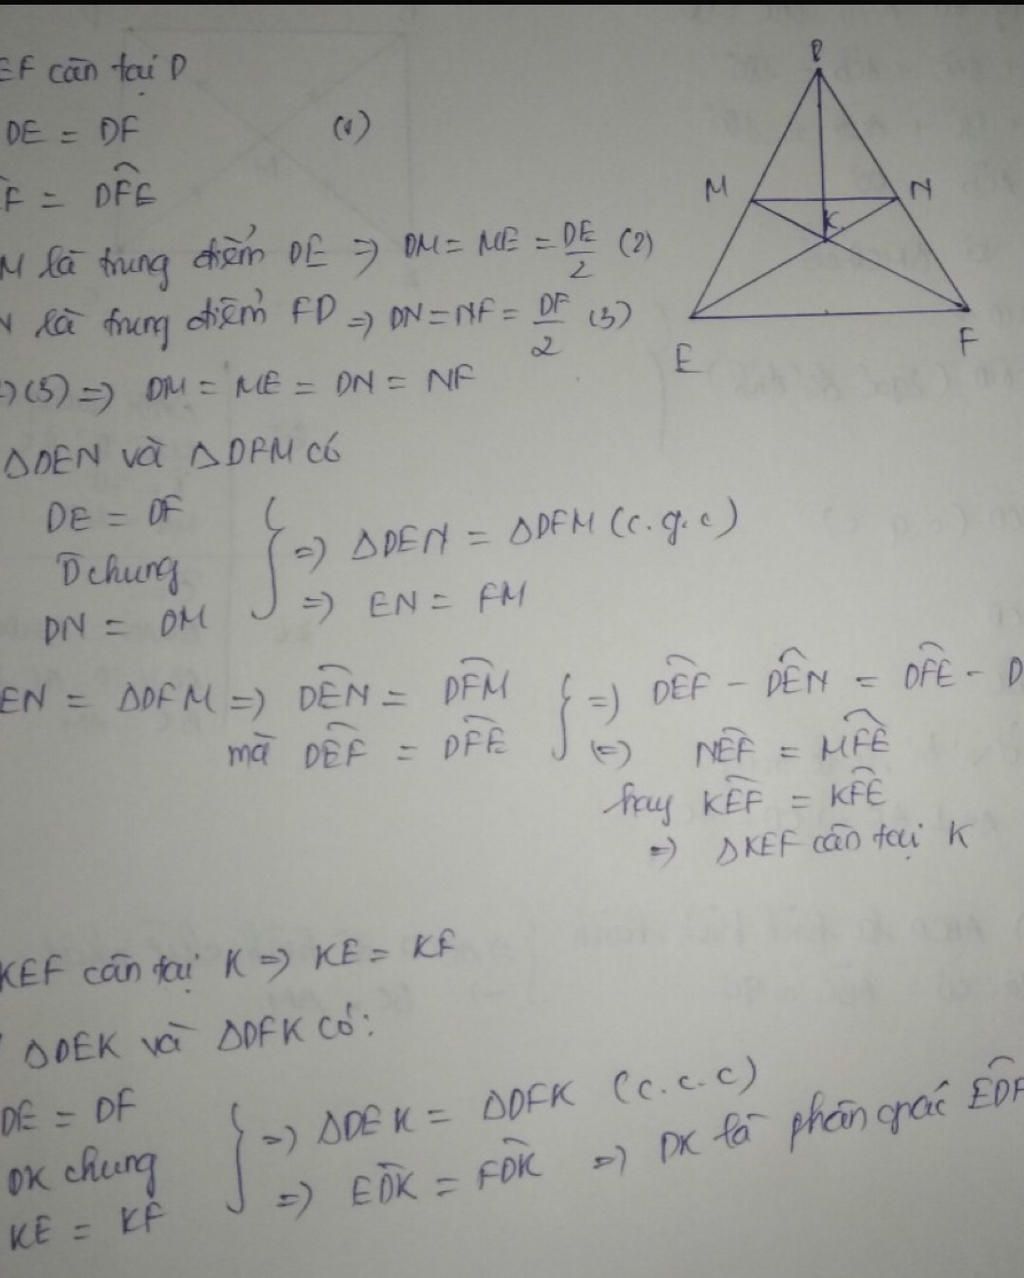 EF cân tại D
DE = DF (1)
F = DFE
M là trung điểm DE => DM = ME = DE/2 (2)
N là trung điểm FD => DN = NF = DF/2 (3)
(3) => DM = ME = DN = NF
ΔDEN và ΔDFM có
DE = DF
D chung
DN = DM
=> ΔDEN = ΔDFM (c.g.c)
=> EN = FM
EN = ΔDFM => DEN = DFM
mà DEF = DFE
=> DEF - DEN = DFE - D
(=) NEF = MFE
hay KEF = KFE
=> ΔKEF cân tại K
KEF cân tại K => KE = KF
ΔDEK và ΔDFK có:
DE = DF
DK chung
KE = KF
=> ΔDEK = ΔDFK (c.c.c)
=> EDK = FDK => DK là phân giác EDF
D
M
N
K
E
F